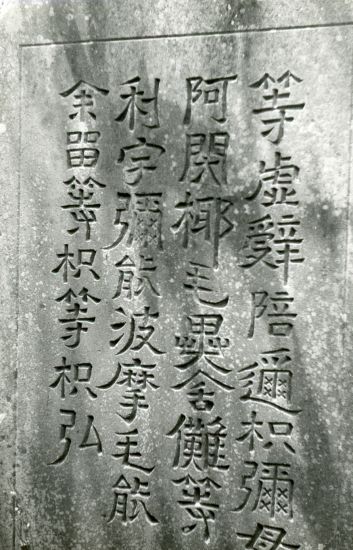 等虚辤陪邇枳彌母
阿閇椰毛舋舎儺等
利宇彌能波摩毛能
余留等枳等枳弘